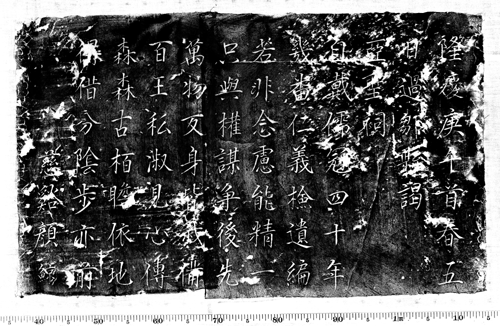 隆慶庚午首春五
日過鄒縣謁
亞聖祠
自戴儒冠四十年
幾番仁義檢遺編
若非念慮能精一
只與權謀爭後先
萬物反身皆我備
百王私淑見心傳
森森古栢聊依地
借分陰步亦前
慈谿顏鯨